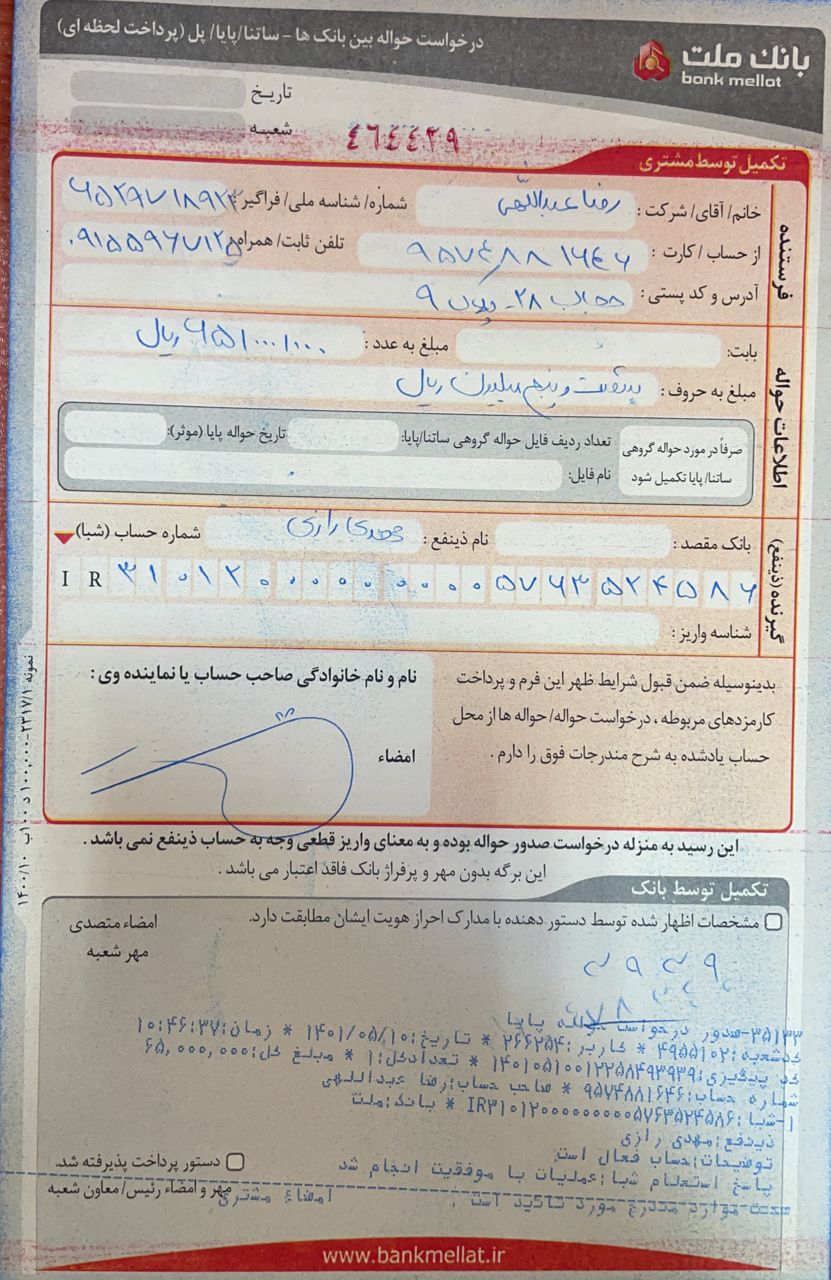 درخواست حواله بین بانک ها - ساتنا/پایا/ پل (پرداخت لحظه ای)
بانک ملت
bank mellat
تاریخ
شعبه
٤٦٤٤٢٩
تکمیل توسط مشتری
فرستنده
خانم/ آقای/ شرکت: رضا عبداللهی شماره/ شناسه ملی/ فراگیر:
از حساب/ کارت: ۹۵۷۴۸۸۱۶۴۶ تلفن ثابت/ همراه: ۰۹۱۵۵۹۶۷۱۲۵
آدرس و کد پستی: حجاب ۲۸ - پلاک ۹
اطلاعات حواله
بابت: مبلغ به عدد: ۶۵/۰۰۰/۰۰۰ ریال
مبلغ به حروف: شصت و پنج میلیون ریال
صرفاً در مورد حواله گروهی ساتنا/ پایا تکمیل شود
تعداد ردیف فایل حواله گروهی ساتنا/پایا: تاریخ حواله پایا (موثر):
نام فایل:
گیرنده (ذینفع)
بانک مقصد: نام ذینفع: مهدی رازی شماره حساب (شبا)
IR ۳۱۰۱۲۰۰۰۰۰۰۰۰۰۰۵۷۶۳۵۲۴۵۸۶
شناسه واریز:
بدینوسیله ضمن قبول شرایط ظهر این فرم و پرداخت
کارمزدهای مربوطه، درخواست حواله/ حواله ها از محل
حساب یادشده به شرح مندرجات فوق را دارم.
نام و نام خانوادگی صاحب حساب یا نماینده وی:
امضاء
این رسید به منزله درخواست صدور حواله بوده و به معنای واریز قطعی وجه به حساب ذینفع نمی باشد.
این برگه بدون مهر و پرفراژ بانک فاقد اعتبار می باشد.
تکمیل توسط بانک
مشخصات اظهار شده توسط دستور دهنده با مدارک احراز هویت ایشان مطابقت دارد.
امضاء متصدی
مهر شعبه
۳۵۱۳۳-صدور درخواست حواله پایا
کدشعبه:۴۹۵۵۱۰۲ * کاربر:۲۶۶۲۵۴ * تاریخ:۱۴۰۱/۰۵/۱۰ * زمان:۱۰:۴۶:۳۷
کد پیگیری:۱۴۰۱۰۵۱۰۰۱۲۲۵۸۴۹۳۹۳۹ * تعدادکل:۱ * مبلغ کل:۶۵,۰۰۰,۰۰۰
شماره حساب:۹۵۷۴۸۸۱۶۴۶ * صاحب حساب:رضا عبداللهی
۱-شبا:IR۳۱۰۱۲۰۰۰۰۰۰۰۰۰۰۵۷۶۳۵۲۴۵۸۶ * بانک:ملت
ذینفع:مهدی رازی
توضیحات:حساب فعال است
پاسخ استعلام شبا:عملیات با موفقیت انجام شد
صحت موارد مندرج مورد تائید است . امضاء مشتری
دستور پرداخت پذیرفته شد.
مهر و امضاء رئیس/ معاون شعبه
www.bankmellat.ir